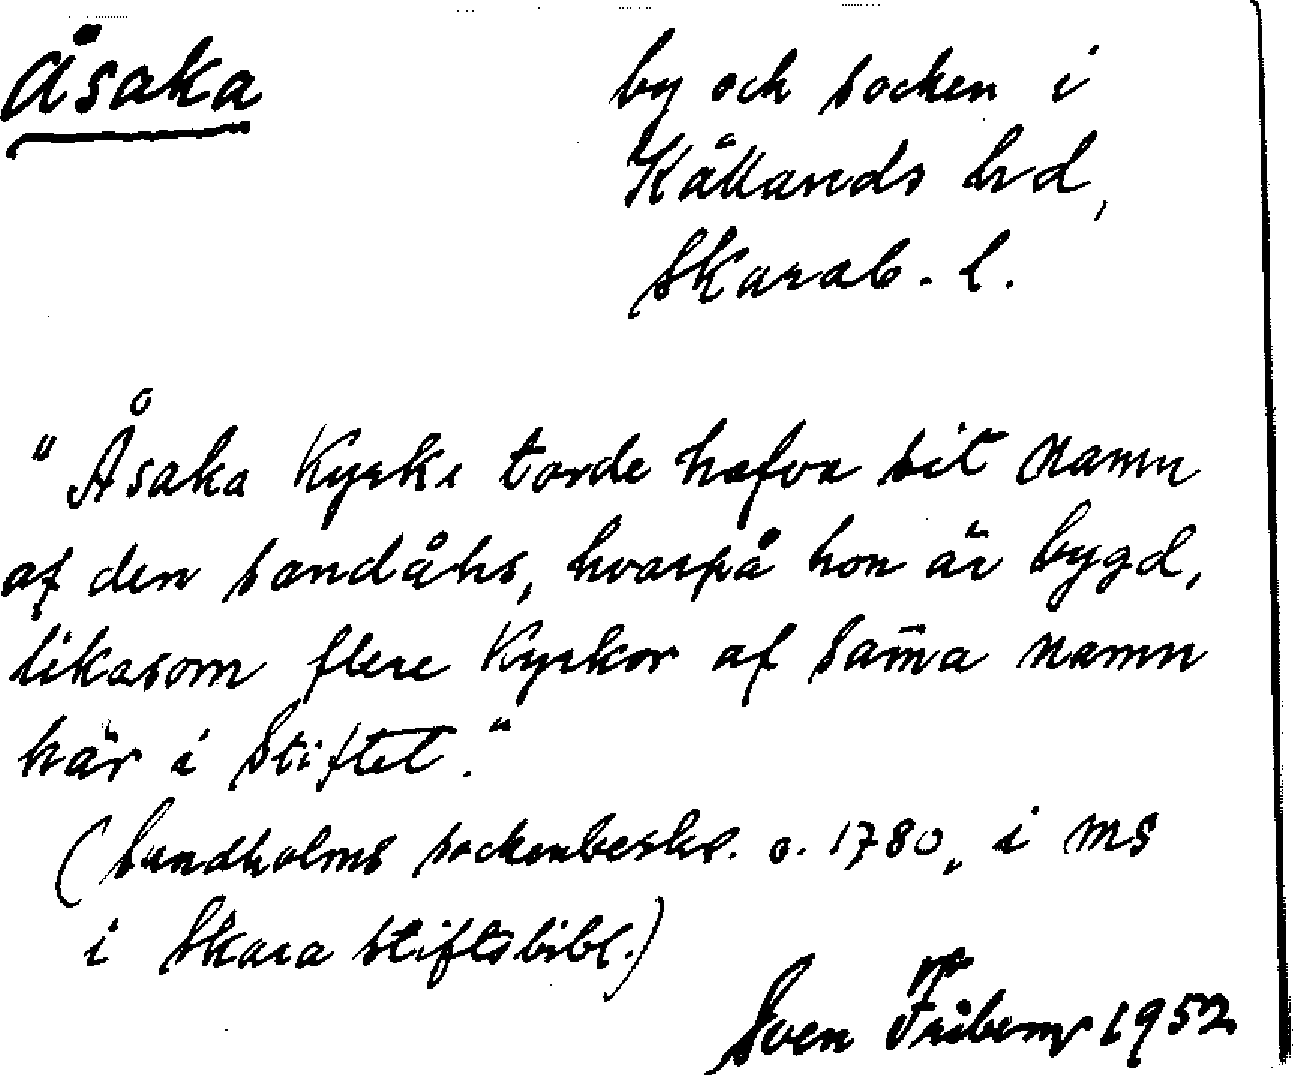 Åsaka
by och socken i
Kållands hrd,
Skarab. l.
"Åsaka Kyrka torde hafva sit namn
af den sandåhs, hvarpå hon är bygd,
likasom flere Kyrkor af sam̄a namn
här i Stiftet."
(Sundholms sockenbeskr. o. 1780, i ms
i Skara stiftsbibl.)
Sven Friberg 1952